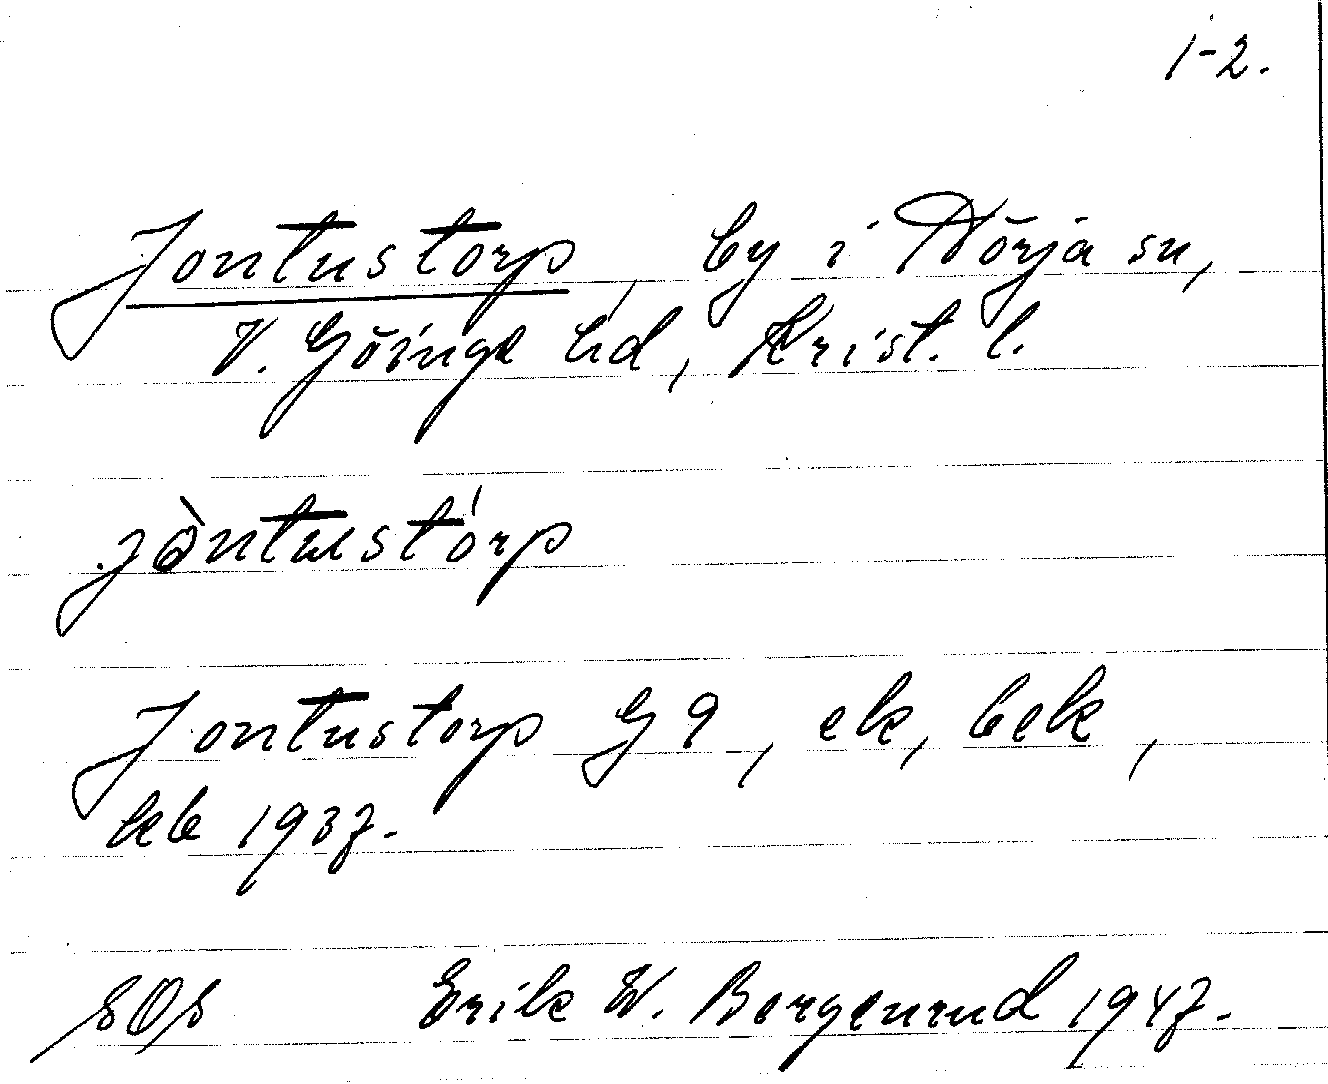 1-2.
Jontustorp, by i Nörja sn,
V. Göinge hd, Krist. l.
jòntustórp
Jontustorp G 9, ek, bek,
keb 1937.
SOS Erik W. Borgenrud 1947.